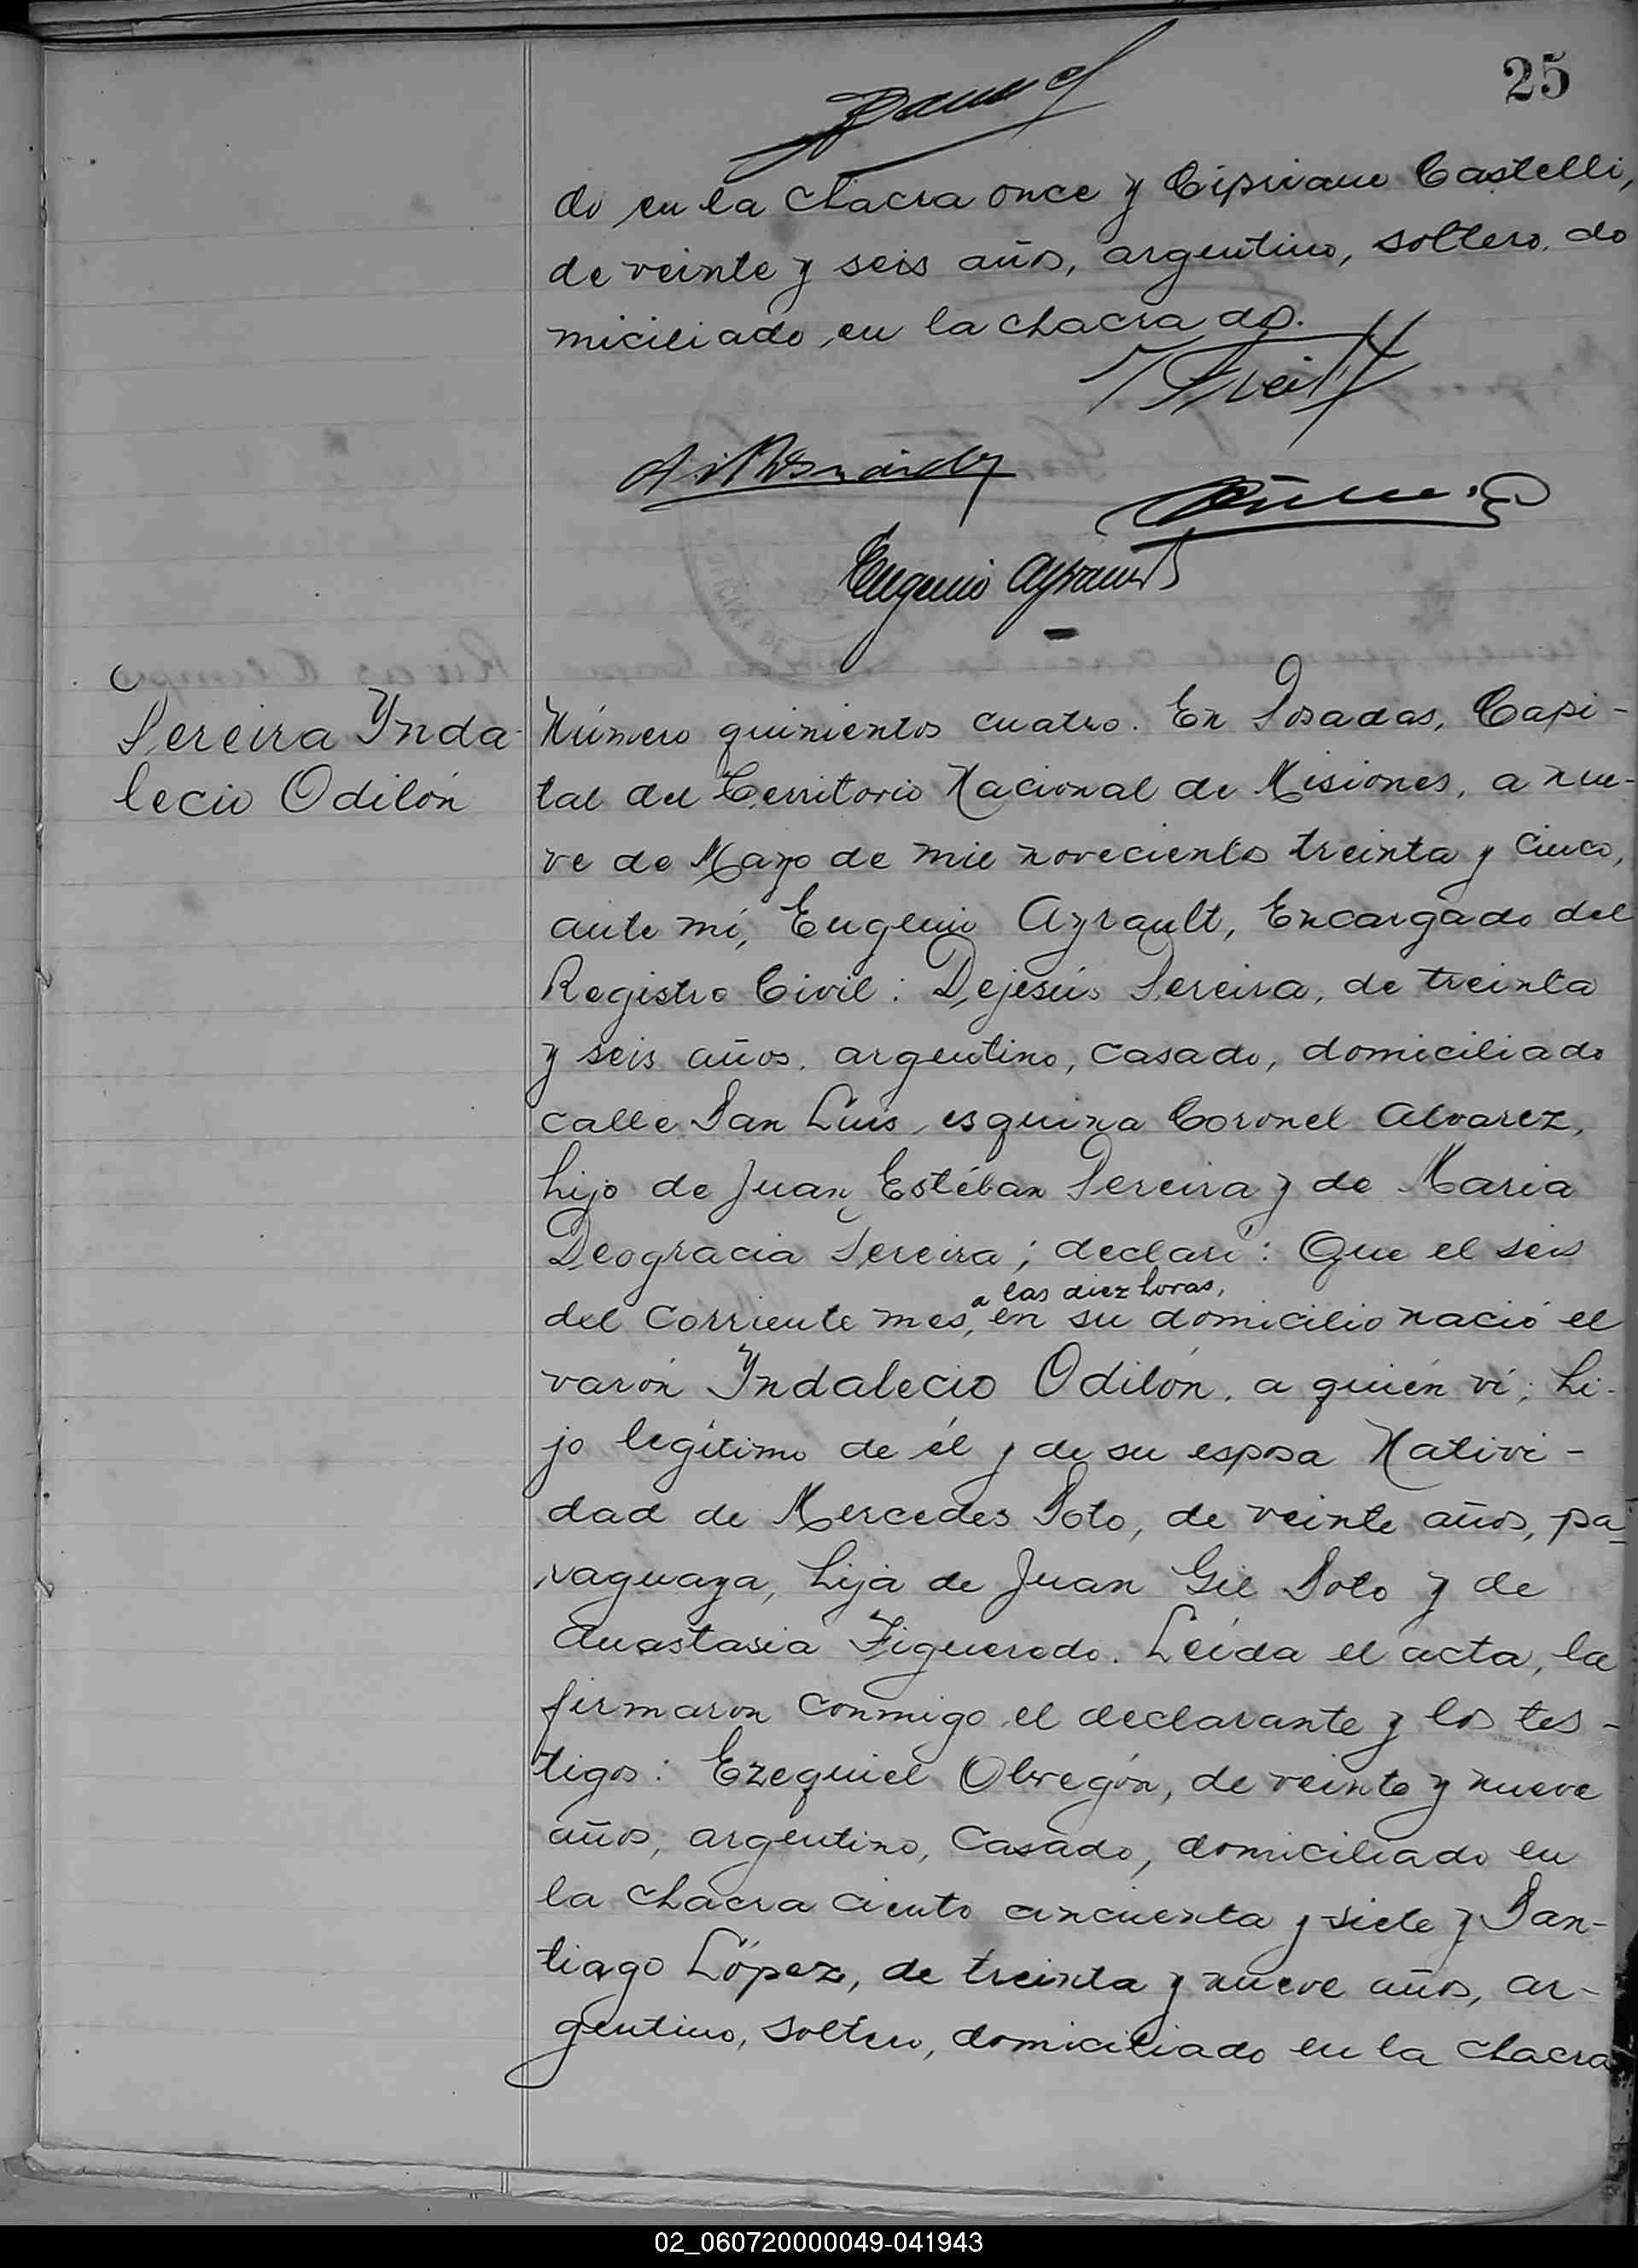 25
do en la chacra once y Cipriano Castelli,
de veinte y seis años, argentino, soltero, do
miciliado en la chacra dos.
Eugenio Ayrault
Pereira Ynda-
lecio Odilón
Número quinientos cuatro. En Posadas, Capi-
tal del Territorio Nacional de Misiones, a nue-
ve de Mayo de mil novecientos treinta y cinco,
ante mí, Eugenio Ayrault, Encargado del
Registro Civil: Dejesús Pereira, de treinta
y seis años, argentino, casado, domiciliado
calle San Luis, esquina Coronel Alvarez,
hijo de Juan Estéban Pereira y de Maria
Deogracia Pereira; declaró: Que el seis
a las diez horas,
del corriente mes, en su domicilio nació el
varón Yndalecio Odilón, a quién ví; hi-
jo legítimo de él y de su esposa Nativi-
dad de Mercedes Soto, de veinte años, pa-
raguaya, hija de Juan Gil Soto y de
Anastasia Figueredo. Leída el acta, la
firmaron conmigo el declarante y los tes-
tigos: Ezequiel Obregón, de veinte y nueve
años, argentino, casado, domiciliado en
la chacra ciento cincuenta y siete y San-
tiago López, de treinta y nueve años, ar-
gentino, soltero, domiciliado en la chacra
02_060720000049-041943